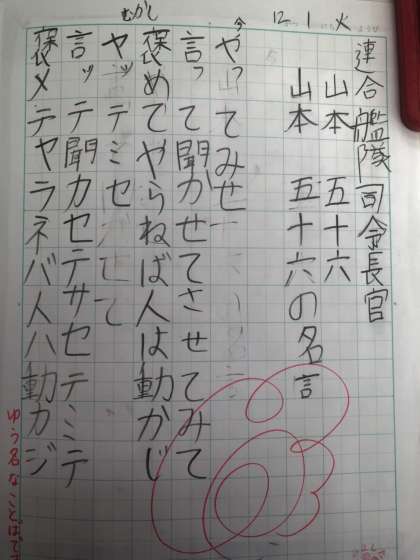 12 1 火
連合艦隊司令長官
山本 五十六
山本 五十六の名言
今
やってみせ
言って聞かせてさせてみて
褒めてやらねば人は動かじ
むかし
ヤッテミセ
言ッテ聞カセテサセテミテ
褒メテヤラネバ人ハ動カジ
ゆう名なことばです